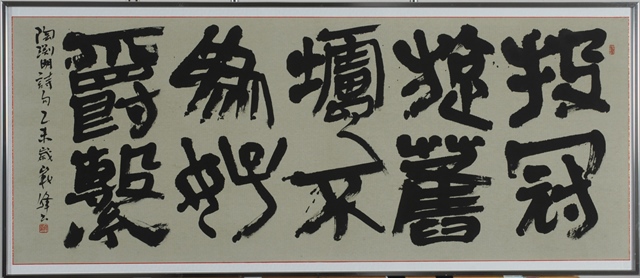 投冠
旋舊
墟不
為好
爵繫
陶渊明詩句乙未歲